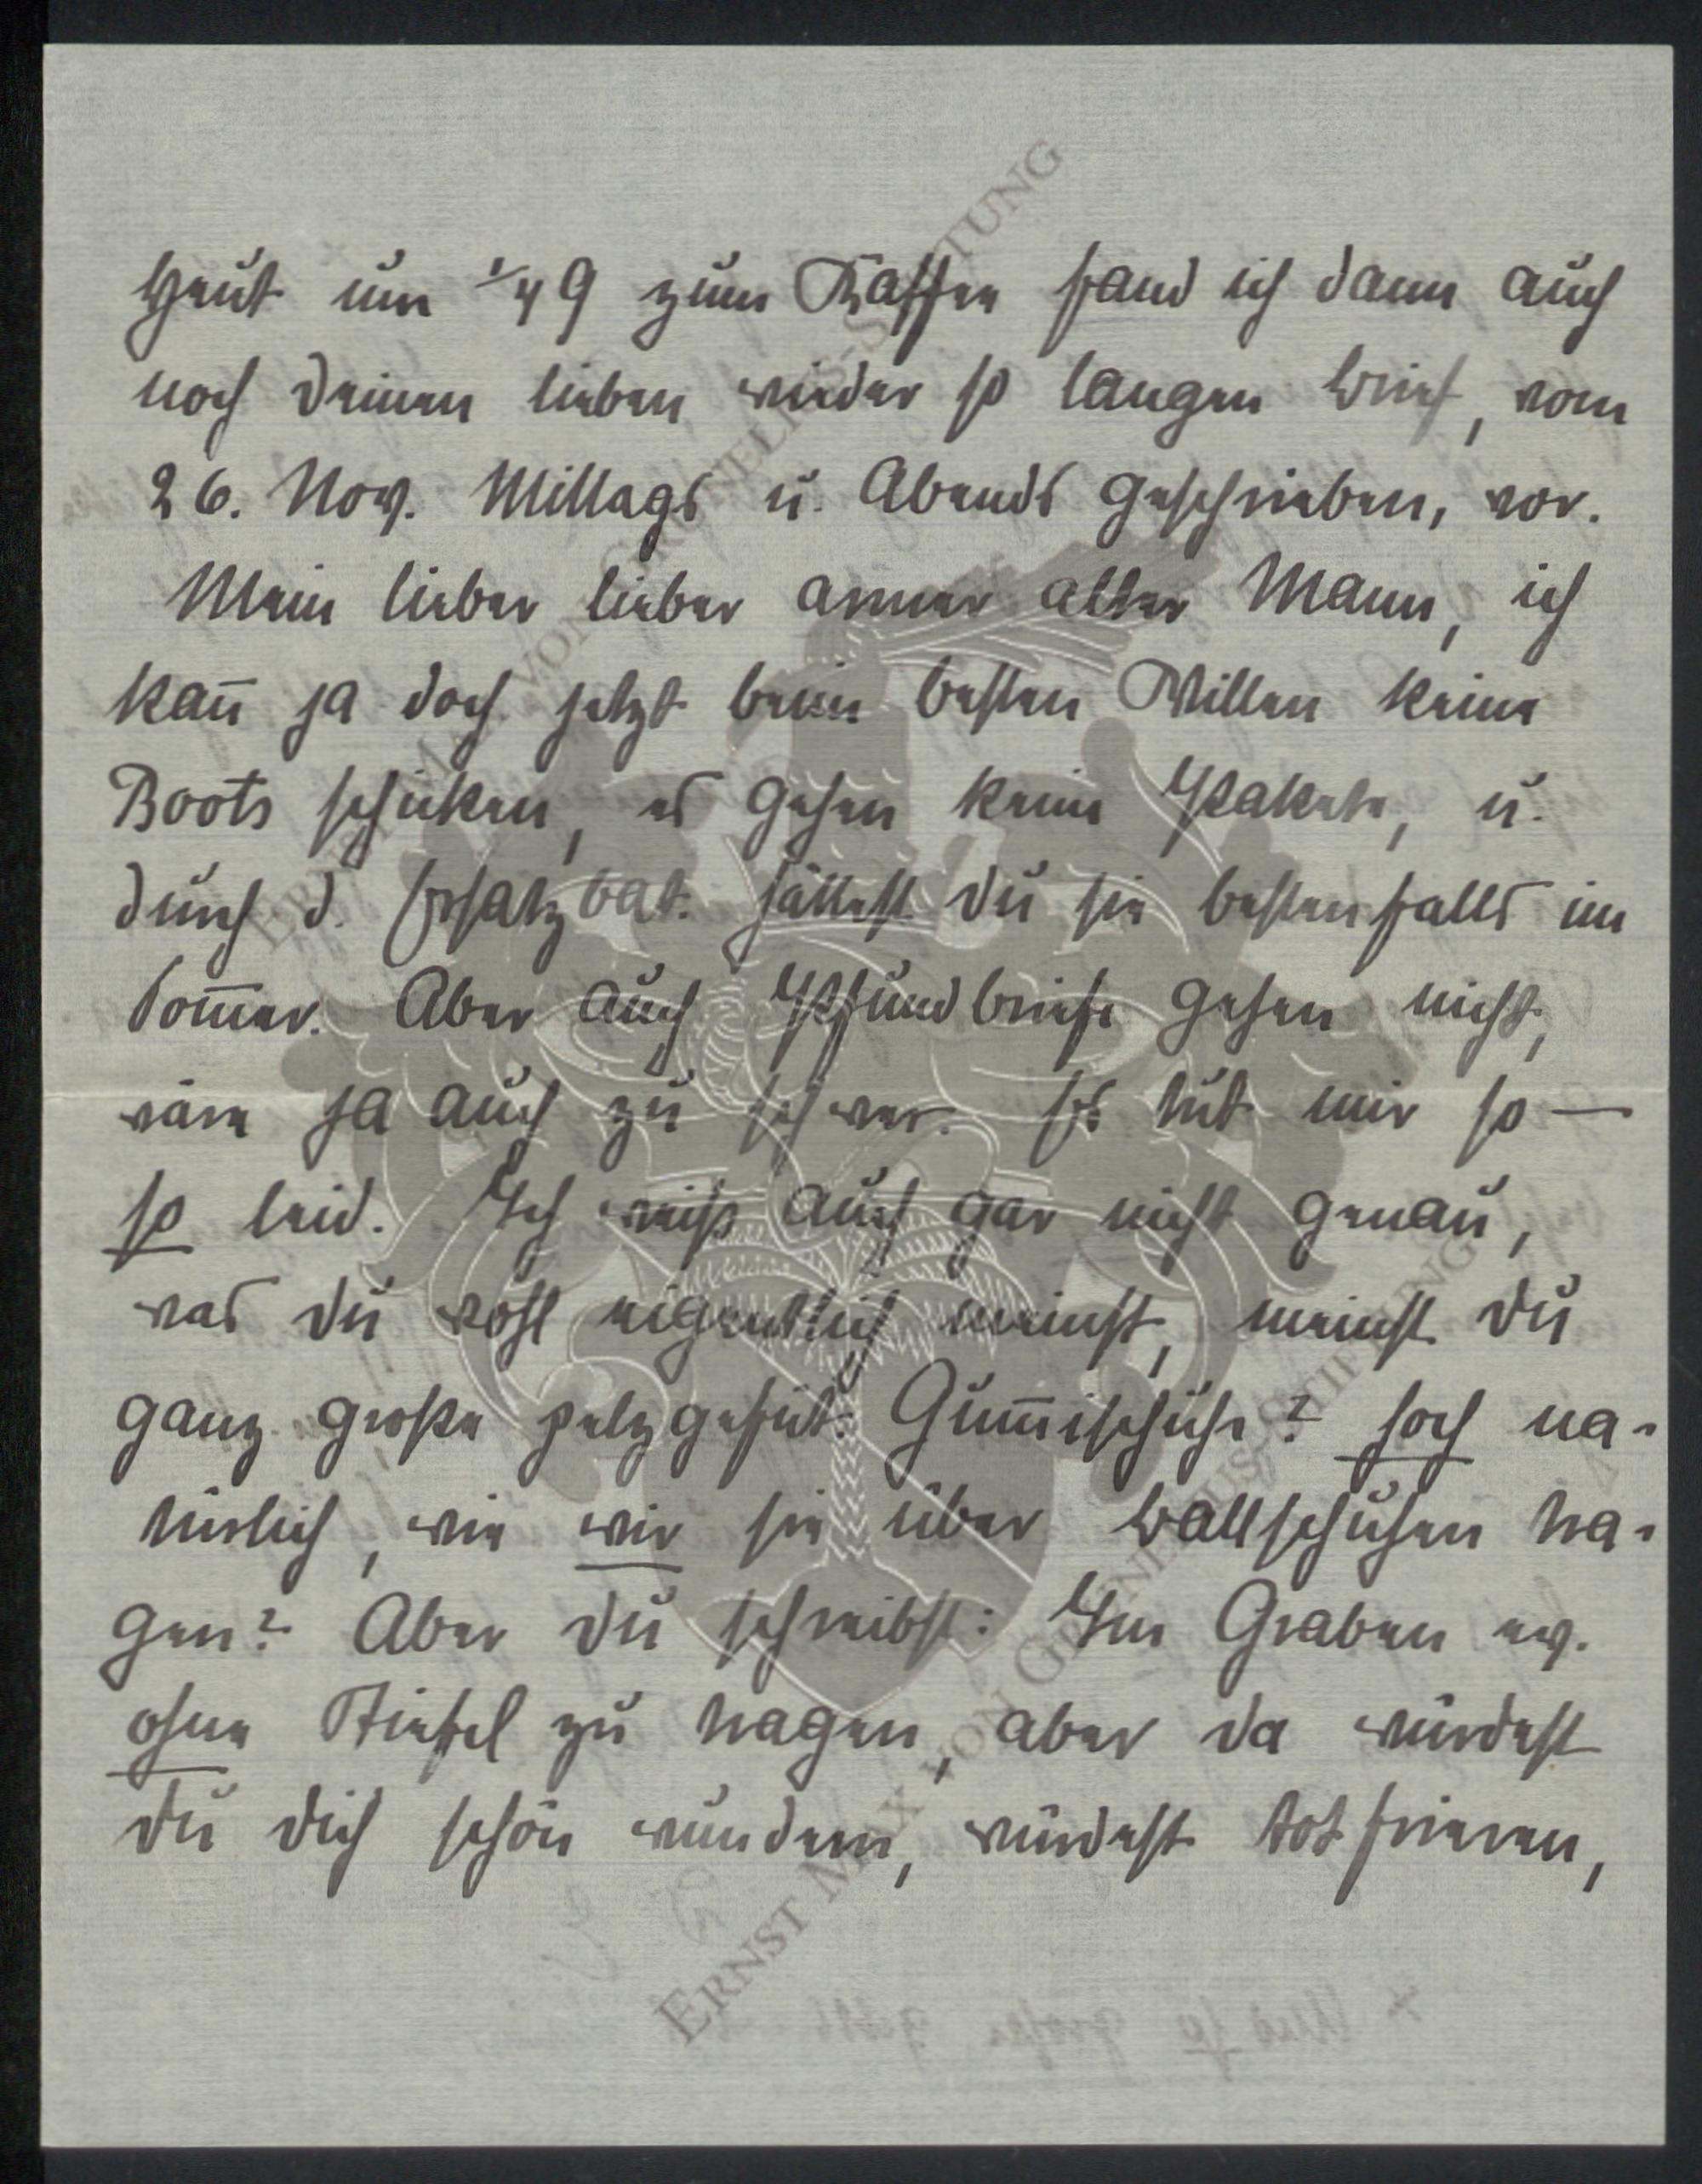 Heut um 1/4 9 zum Kaffee fand ich dann auch
noch Deinen lieben, wieder so langen Brief, vom
26. Nov. Mittags u. Abends geschrieben, vor.
Mein lieber lieber armer alter Mann, ich
kan̄ ja doch jetzt beim besten Willen keine
Boots schicken, es gehen keine Pakete, u.
durch d. Ersatzbat. hättest Du sie bestenfalls im
Som̄er. Aber auch Pfundbriefe gehen nicht,
wäre ja auch zu schwer. Es tut mir so —
so leid. Ich weiß auch gar nicht genau,
was Du wohl eigentlich meinst, meinst Du
ganz große pelzgefüt. Gum̄ischuhe? hoch na-
türlich, wie wir sie über Ballschuhen tra-
gen? Aber Du schreibst: Im Graben ev.
ohne Stiefel zu tragen, aber da würdest
Du Dich schön wundern, würdest tot frieren,
ERNST MAX VON GRUNELIUS-STIFTUNG
ERNST MAX VON GRUNELIUS-STIFTUNG